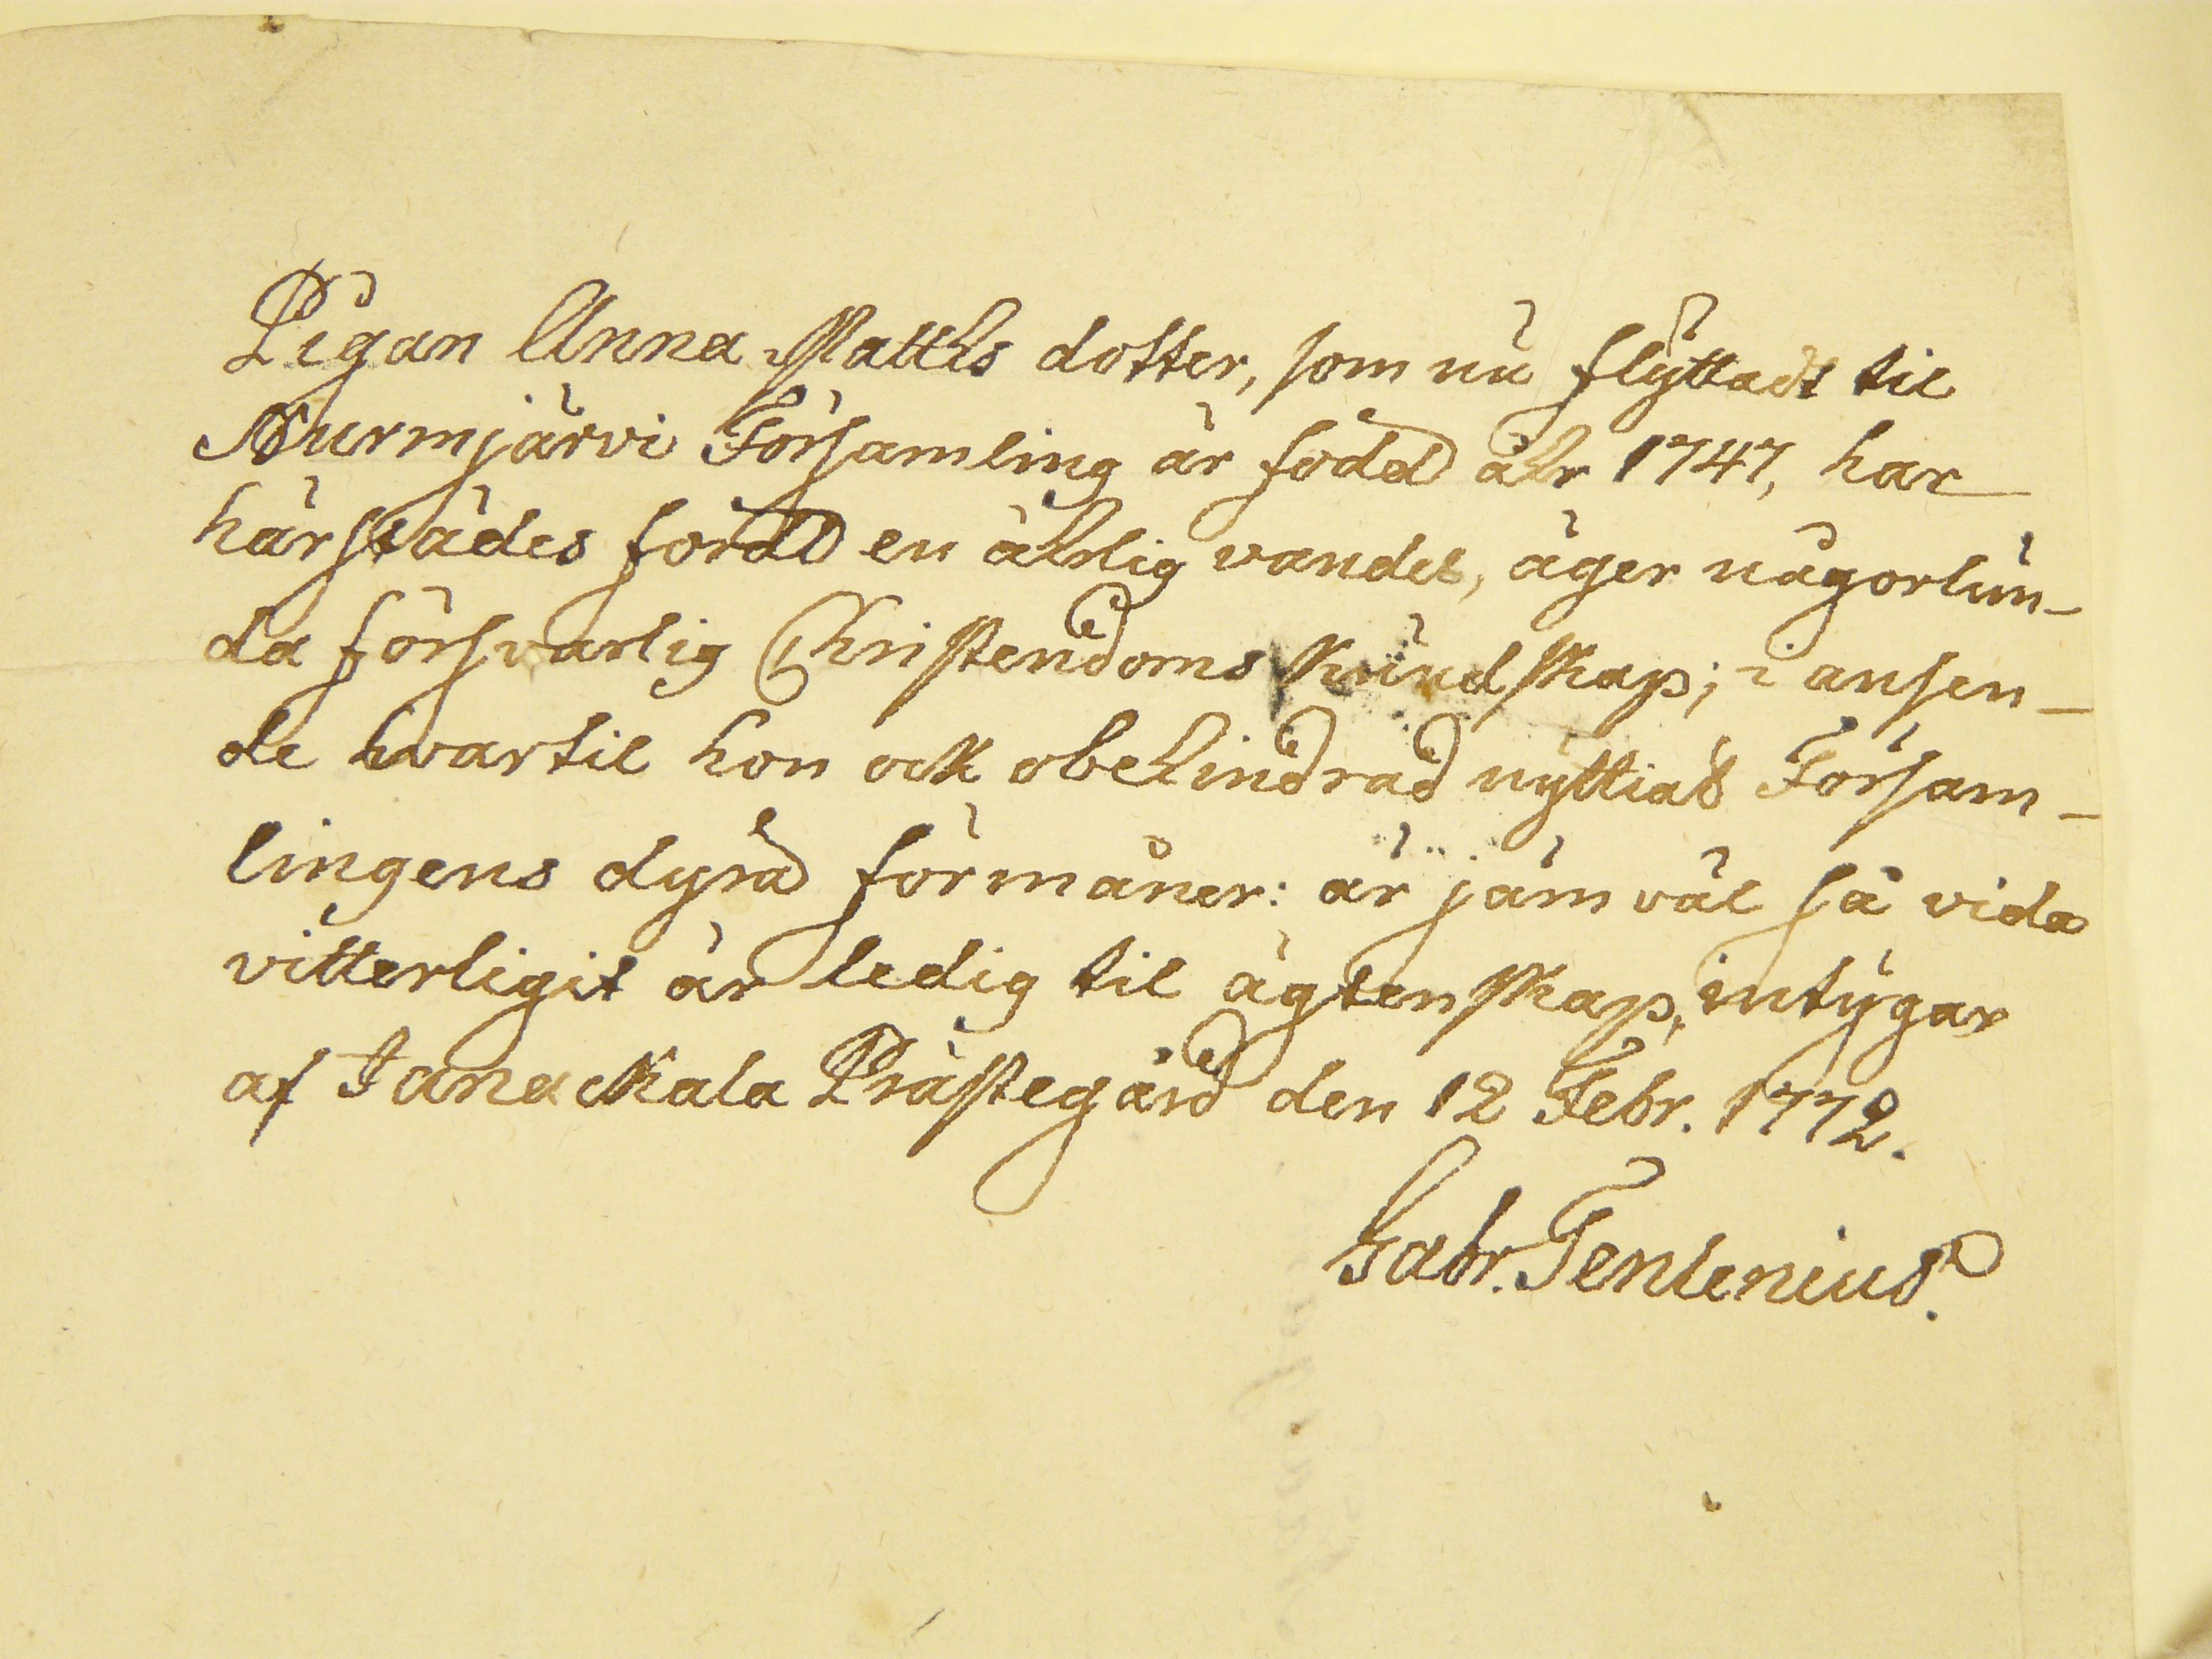 Pigan Anna Matths dotter, som nu flyttadt til
Nurmjärvi Församling är född åhr 1747, har
härstädes fördt en ährlig vandel, äger någorlun-
da försvarlig Christendoms kundskap; i ansen-
de hvartil hon ock obehindrad nyttiat Försam-
lingens dyra förmåner: är jämväl så vida
vitterligit är ledig til ägtenskap, intygar
af Janackala Prästegård den 12 Febr. 1772.
Gabr. Fenlenius.